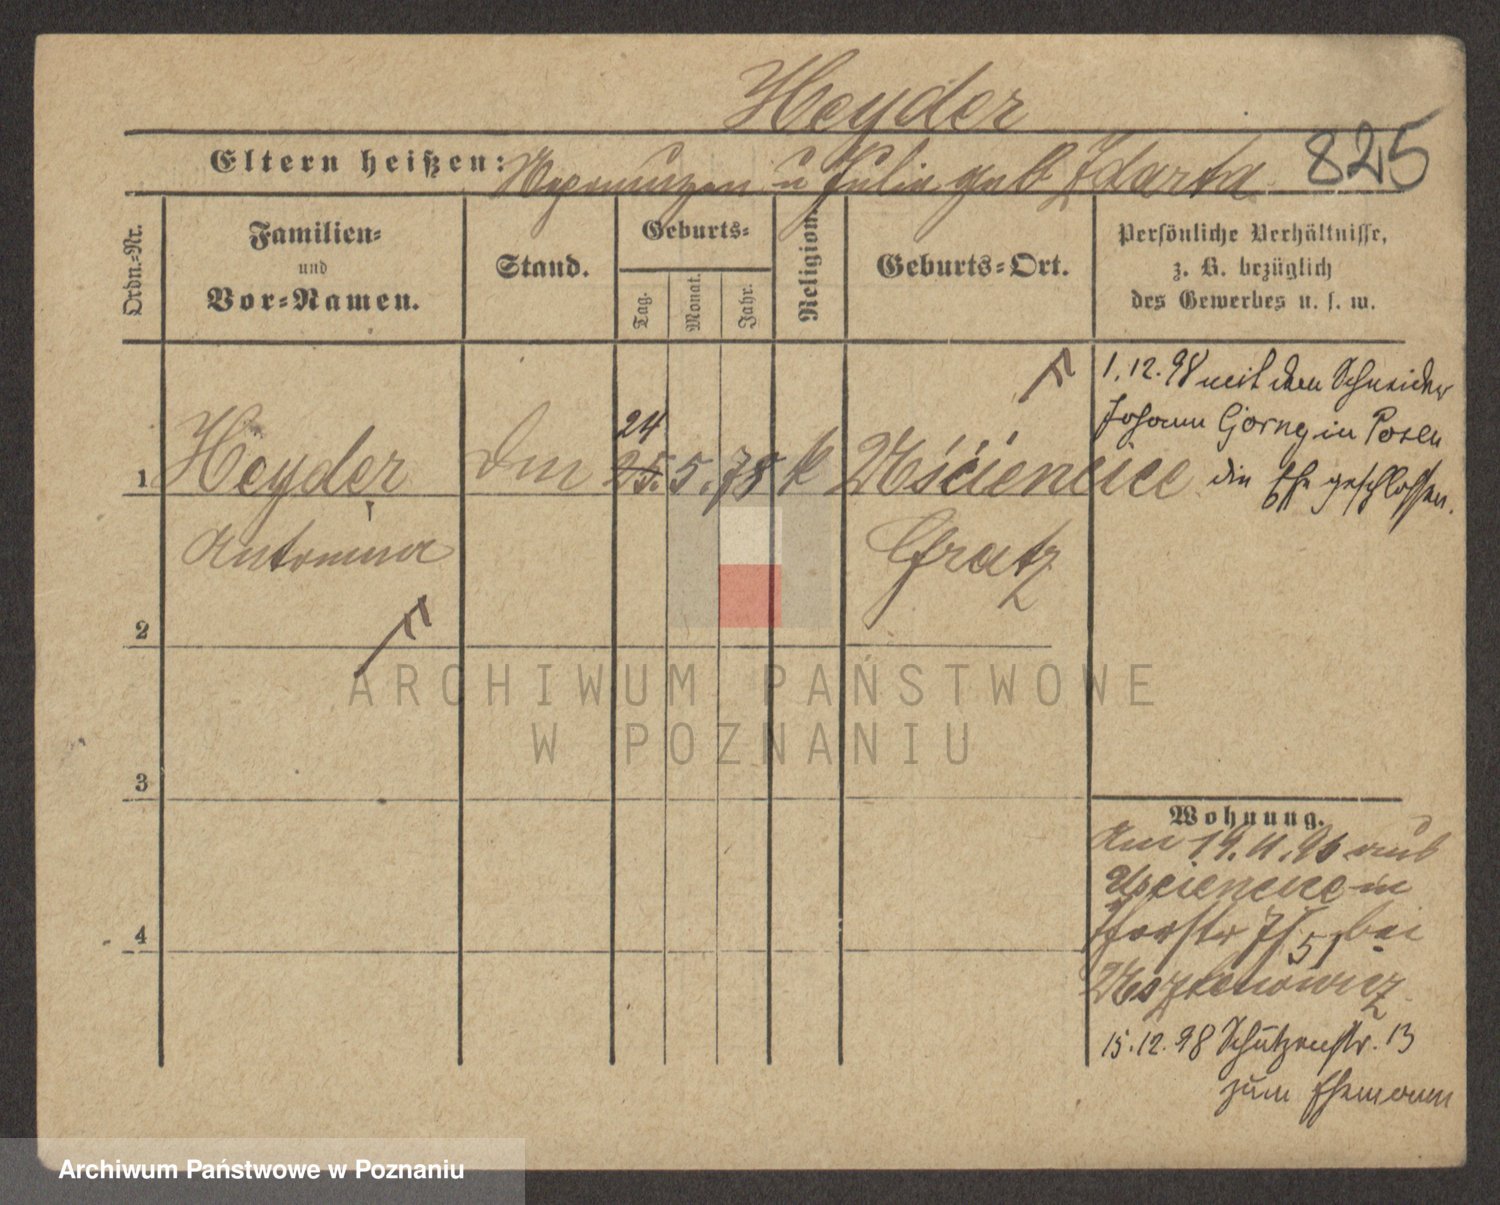 Heyder
825
Eltern heißen: Nepomuzen u Julie geb Zdarta
Ordn.-Nr.
Familien-
und
Vor-Namen.
Stand.
Geburts-
Tag.
Monat.
Jahr.
Religion.
Geburts-Ort.
Persönliche Verhältnisse,
z. B. bezüglich
des Gewerbes u. s. w.
1.12.98 mit dem Schneider
Johann Gorny in Posen
die Ehe geschlossen.
24
1 Heyder 25. 5. 78 k Uścięncice
Antonina Gratz
2
3
4
Wohnung.
am 19. 11. 96 aus
Uscięncice in
51 bei
15.12.98 Schützenstr. 13
zum Ehemann
ARCHIWUM PAŃSTWOWE
W POZNANIU
Archiwum Państwowe w Poznaniu